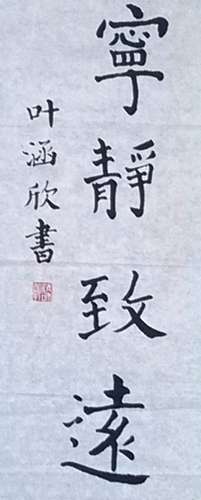 寧靜致遠
叶涵欣書